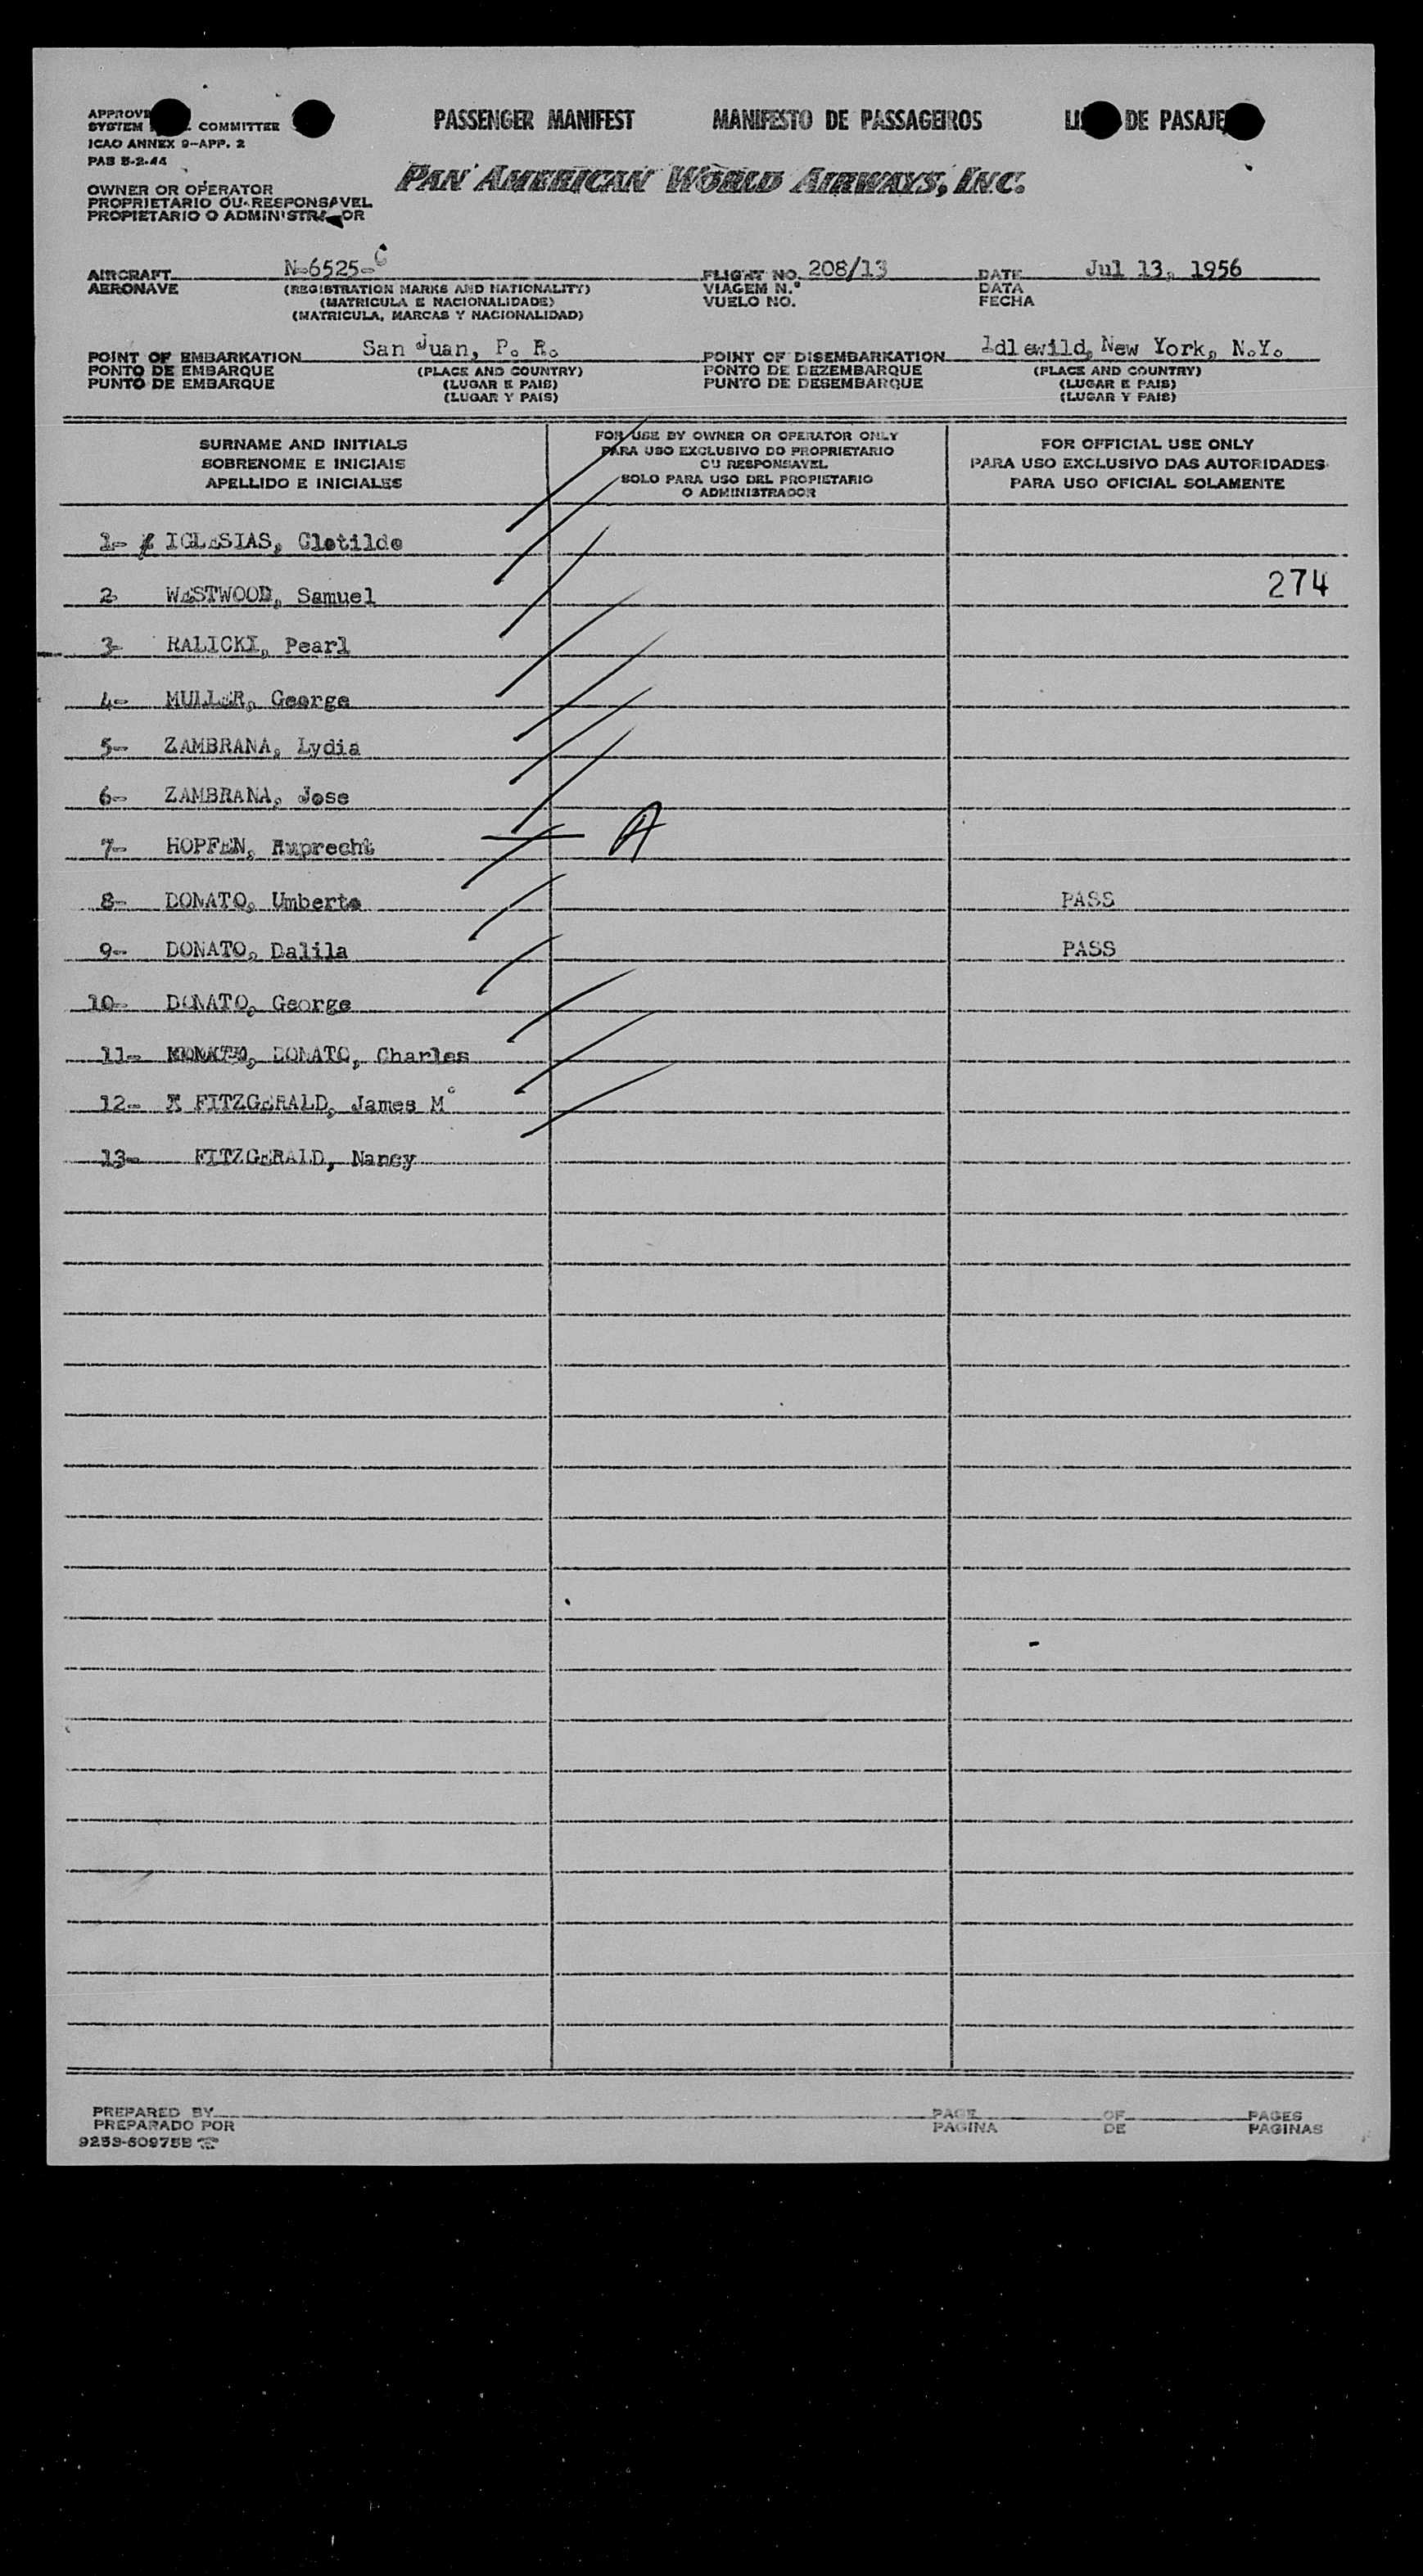 PASSENGER MANIFEST MANIFESTO DE PASSAGEIROS DE
SYSTEM COMMITTEE
ICAO ANNEX 9-APP. 2
PAB 5-2-44
PAN AMERICAN WORLD AIRWAYS, INC.
OWNER OR OPERATOR
PROPRIETARIO OU RESPONSAVEL
PROPIETARIO O
AIRCRAFT N-6525-C FLIGHT NO. 208/13 DATE Jul 13, 1956
AERONAVE (REGISTRATION MARKS AND NATIONALITY) VIAGEM N.º DATA
(MATRICULA E NACIONALIDADE) VUELO NO. FECHA
(MATRICULA, MARCAS Y NACIONALIDAD)
POINT OF EMBARKATION San Juan, P. R. POINT OF DISEMBARKATION Idlewild, New York, N.Y.
PONTO DE EMBARQUE (PLACE AND COUNTRY) PONTO DE DEZEMBARQUE (PLACE AND COUNTRY)
PUNTO DE EMBARQUE (LUGAR E PAIS) PUNTO DE DESEMBARQUE (LUGAR E PAIS)
(LUGAR Y PAIS) (LUGAR Y PAIS)
SURNAME AND INITIALS
SOBRENOME E INICIAIS
APELLIDO E INICIALES
FOR USE BY OWNER OR OPERATOR ONLY
PARA USO EXCLUSIVO DO PROPRIETARIO
OU RESPONSAVEL
SOLO PARA USO DEL PROPIETARIO
O ADMINISTRADOR
FOR OFFICIAL USE ONLY
PARA USO EXCLUSIVO DAS AUTORIDADES
PARA USO OFICIAL SOLAMENTE
1- IGLESIAS, Clotilde
2 WESTWOOD, Samuel 274
3- RALICKI, Pearl
4- MULLER, George
5- ZAMBRANA, Lydia
6- ZAMBRANA, Jose
7- HOPFEN, Ruprecht A
8- DONATO, Umberto PASS
9- DONATO, Dalila PASS
10- DONATO, George
11- DONATO, Charles
12- FITZGERALD, James M
13- FITZGERALD, Nancy
PREPARED BY PAGE OF PAGES
PREPARADO POR PAGINA DE PAGINAS